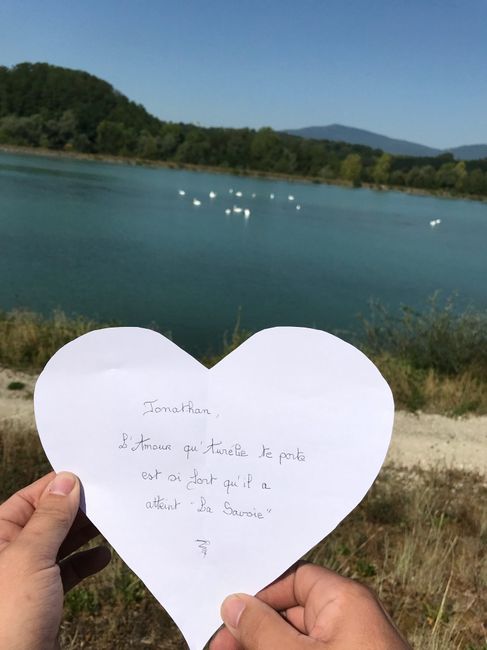 Jonathan,
L'Amour qu'Aurélie te porte
est si fort qu'il a
atteint "La Savoie"